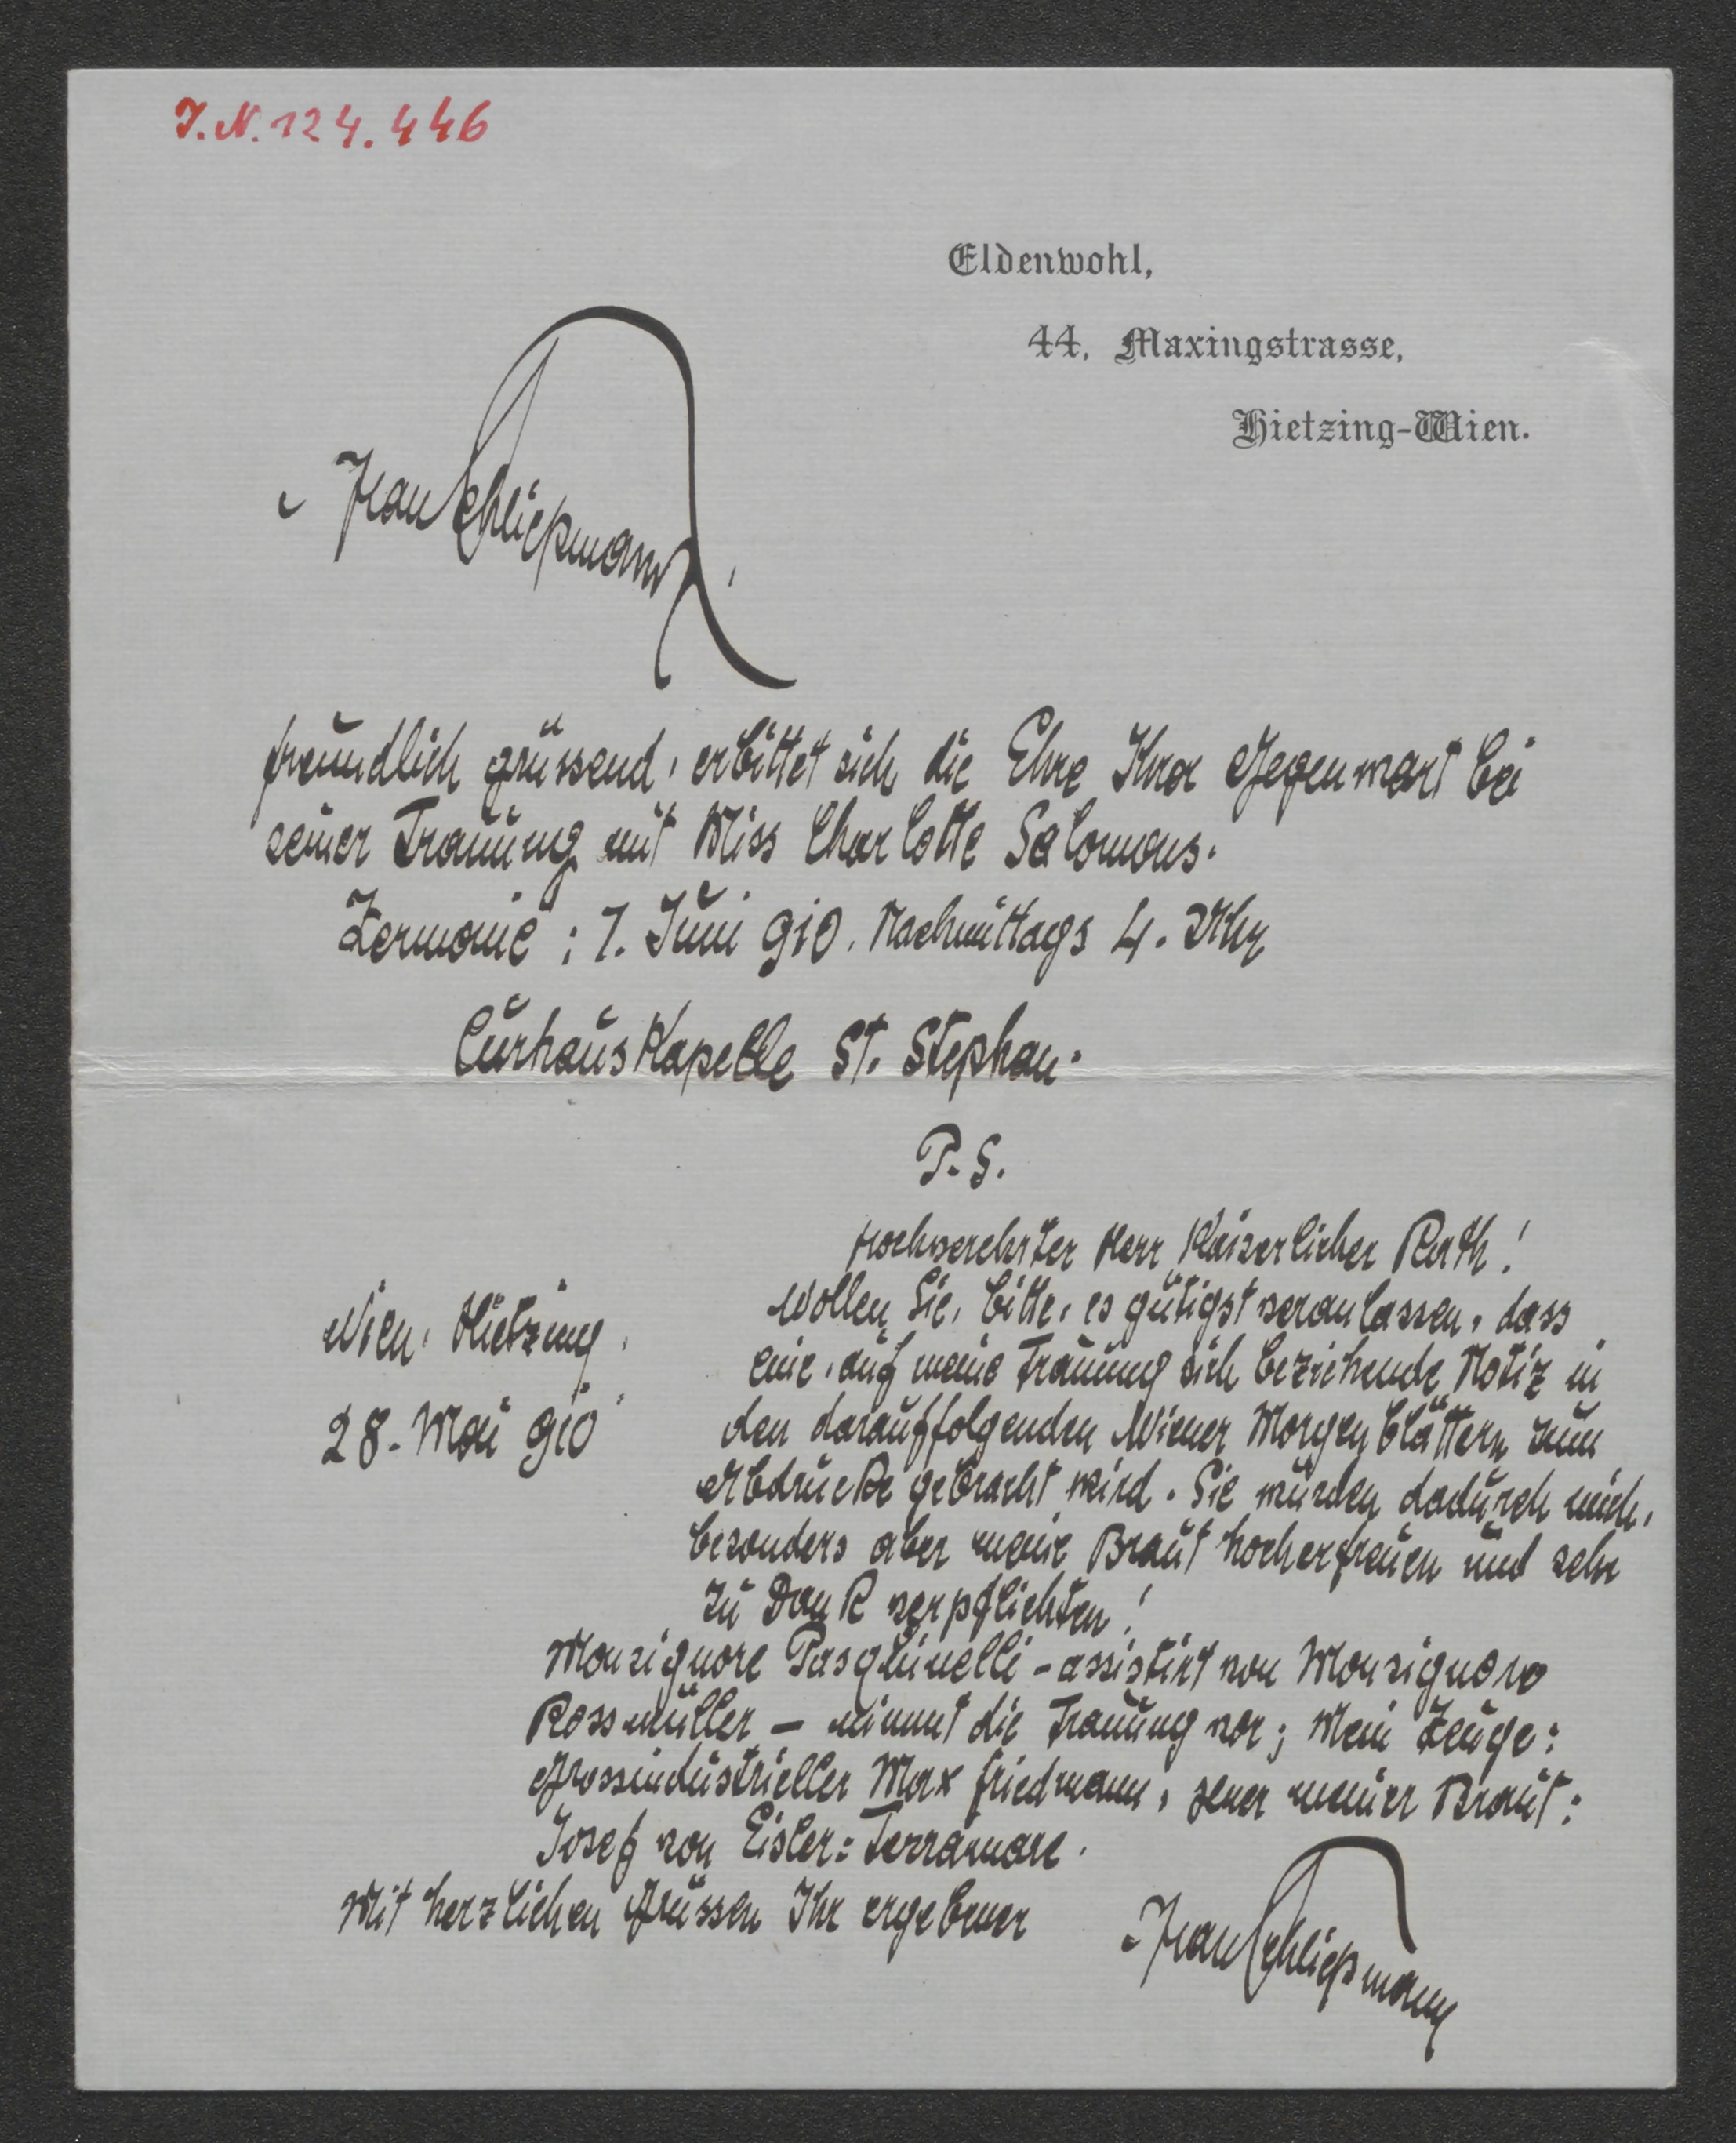 J.N. 124.446
Eldenwohl,
44, Maxingstrasse,
Hietzing-Wien.
Hans Schließmann,
freundlich grüssend, erbittet sich die Ehre Ihrer Gegenwart bei
seiner Trauung mit Miss Charlotte Salomons.
Zermonie: 7. Juni 910. Nachmittags 4. Uhr
Curhauskapelle St. Stephan.
P.S.
Hochverehrter Herr Kaiserlicher Rath!
Wollen Sie, bitte, es gütigst veranlassen, dass
eine, auf meine Trauung sich beziehende Notiz in
den darauffolgenden Wiener Morgenblättern zum
Abdrucke gebracht wird. Sie würden dadurch mich,
besonders aber meine Braut hocherfreuen und sehr
zu Dank verpflichten!
Wien, Hietzing,
28. Mai 910
Monsignore Pasquinelli - assistirt von Monsignore
Rossmüller - nimmt die Trauung vor; Mein Zeuge:
Grossindustrieller Max Friedmann, jener meiner Braut:
Josef von Eisler=Terramare.
Mit herzlichen Grüssen Ihr ergebener
Hans Schließmann